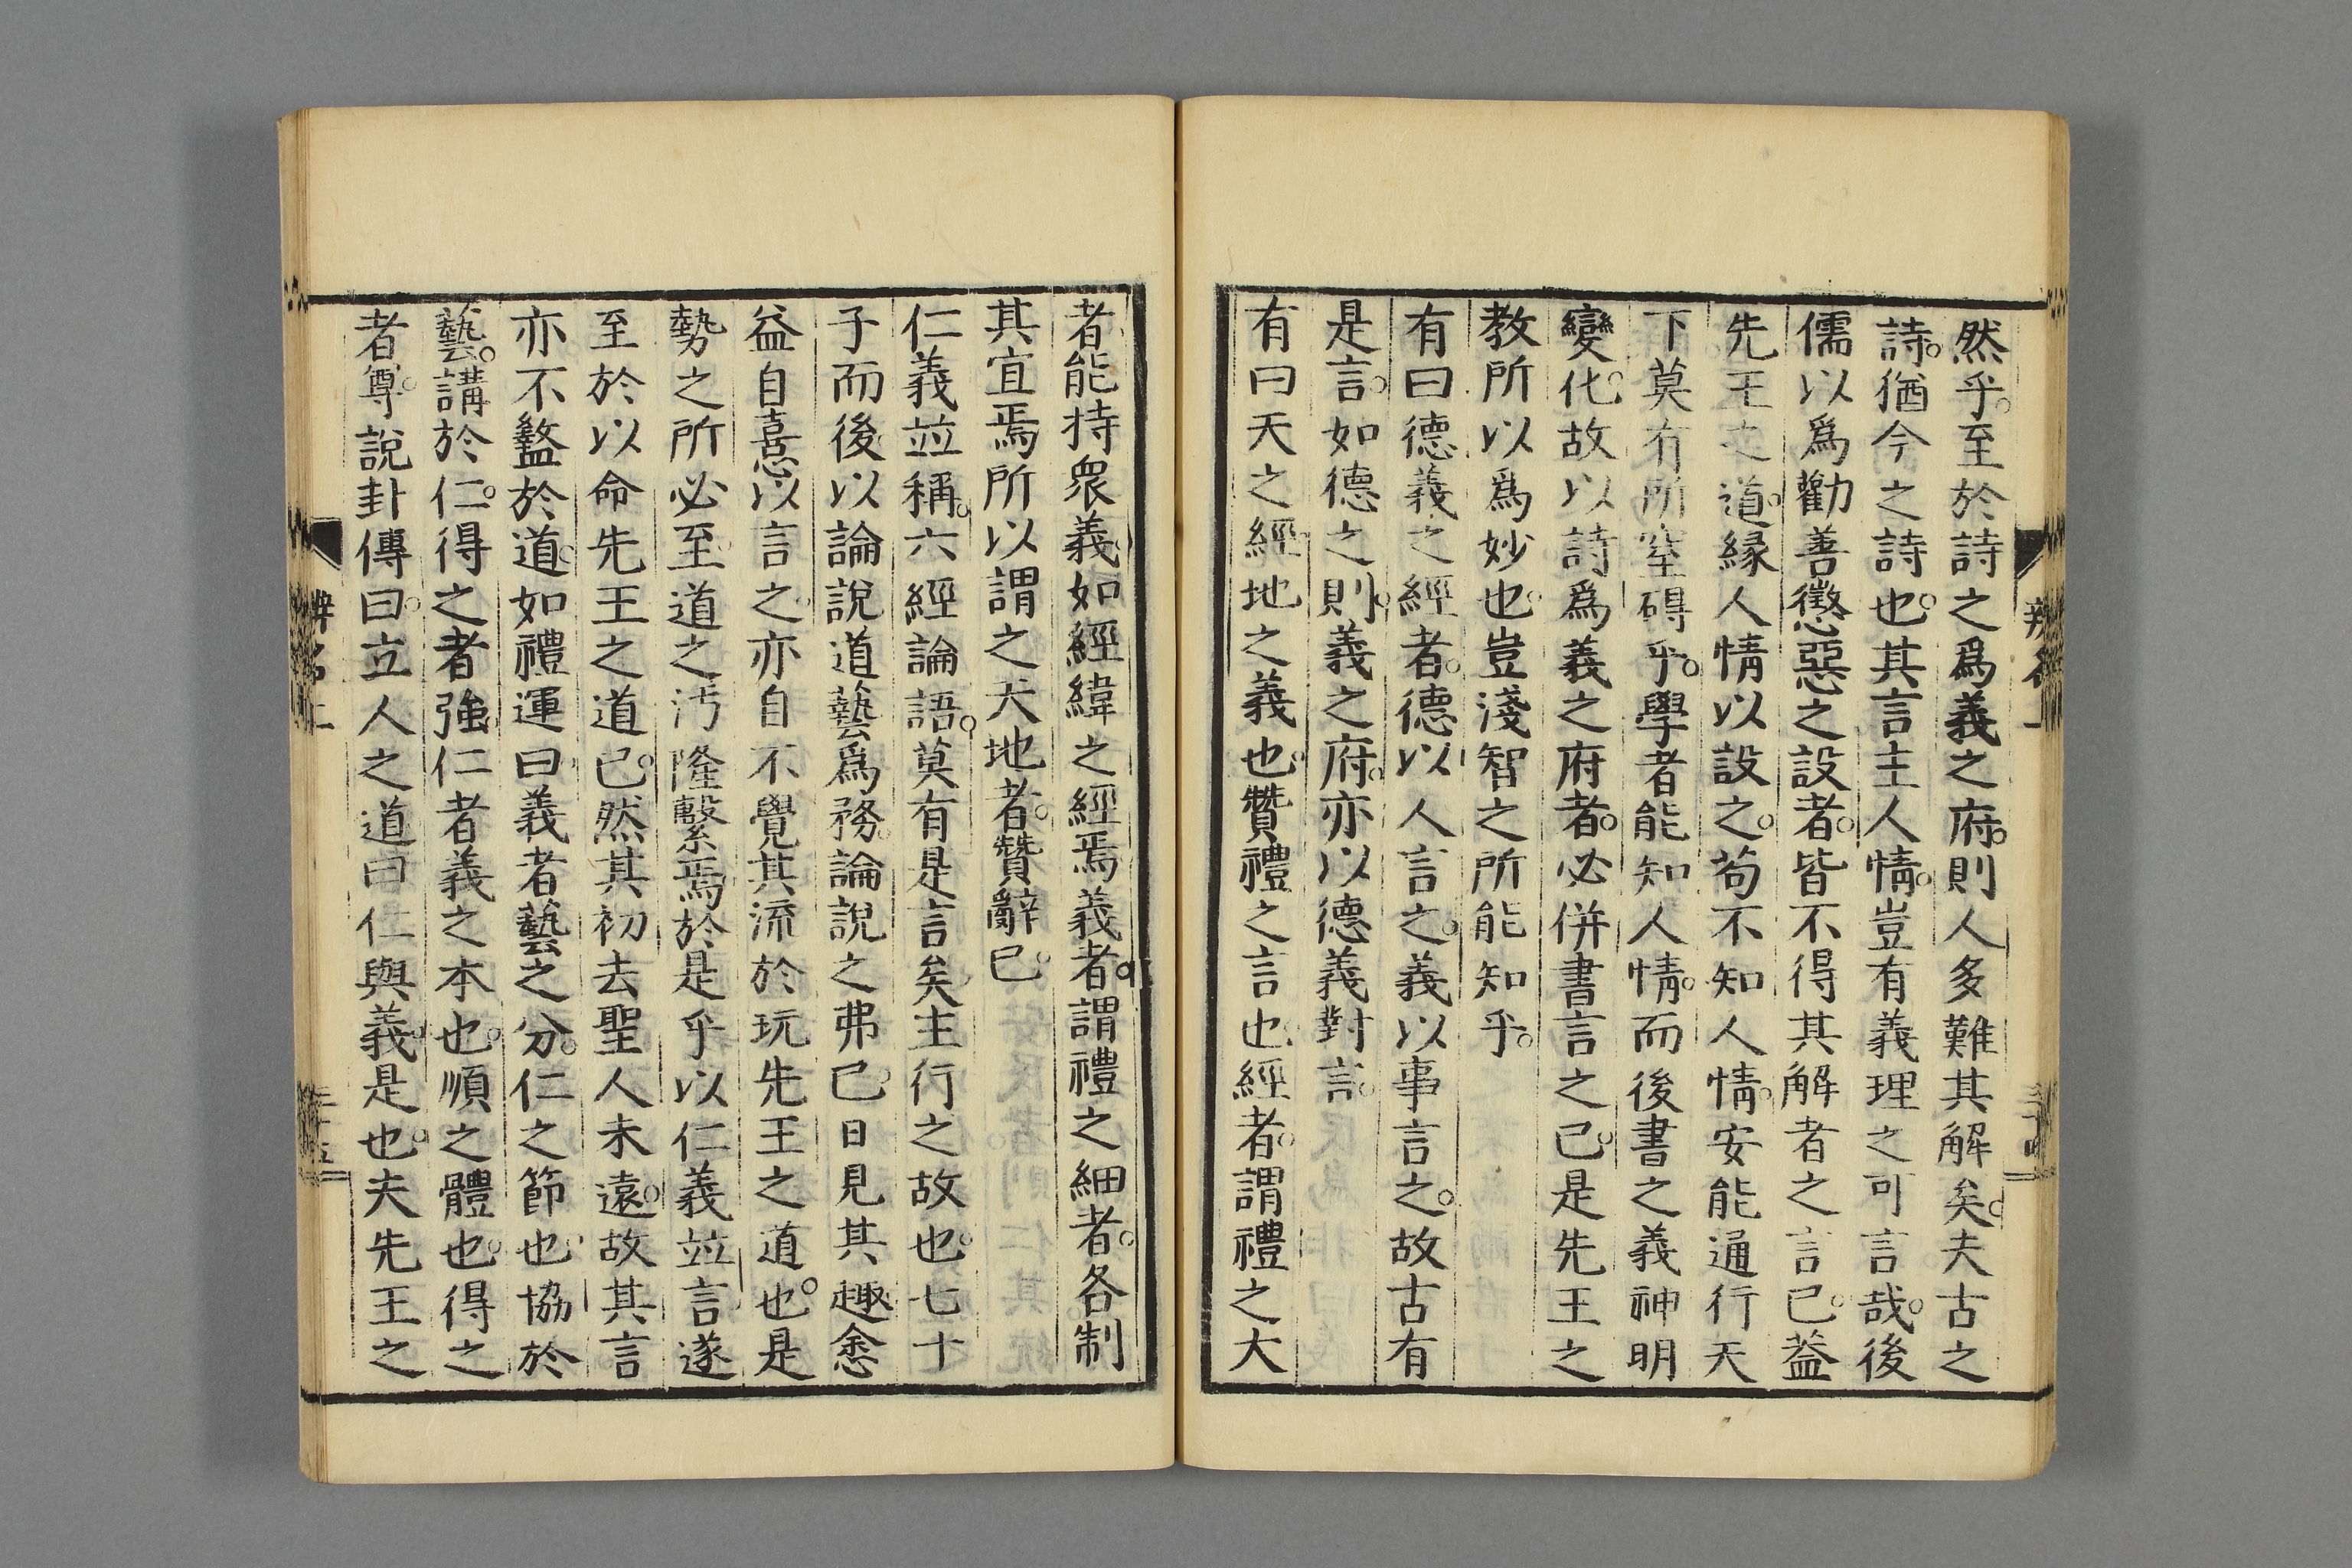 然乎。至於詩之爲義之府。則人多難其解矣。夫古之
詩。猶今之詩也。其言主人情。豈有義理之可言哉。後
儒以爲勸善懲惡之設者。皆不得其解者之言已。葢
先王之道。緣人情以設之。苟不知人情。安能通行天
下莫有所窒碍乎。學者能知人情。而後書之義神明
變化。故以詩爲義之府者。必併書言之已。是先王之
教所以爲妙也。豈淺智之所能知乎。
有曰德義之經者。德以人言之。義以事言之。故古有
是言。如德之則。義之府。亦以德義對言。
有曰天之經地之義也。贊禮之言也。經者。謂禮之大
者能持衆義。如經緯之經焉。義者。謂禮之細者。各制
其宜焉。所以謂之天地者。贊辭已。
仁義竝稱。六經論語。莫有是言矣。主行之故也。七十
子而後。以論說道藝爲務。論說之弗已。日見其趣。悆
益自憙以言之。亦自不覺其流於玩先王之道也。是
勢之所必至。道之汚隆繫焉。於是乎以仁義竝言。遂
至於以命先王之道已。然其初去聖人未遠。故其言
亦不盭於道。如禮運曰。義者藝之分。仁之節也。協於
藝。講於仁。得之者強。仁者義之本也。順之體也。得之
者尊。說卦傳曰。立人之道。曰仁與義。是也。夫先王之